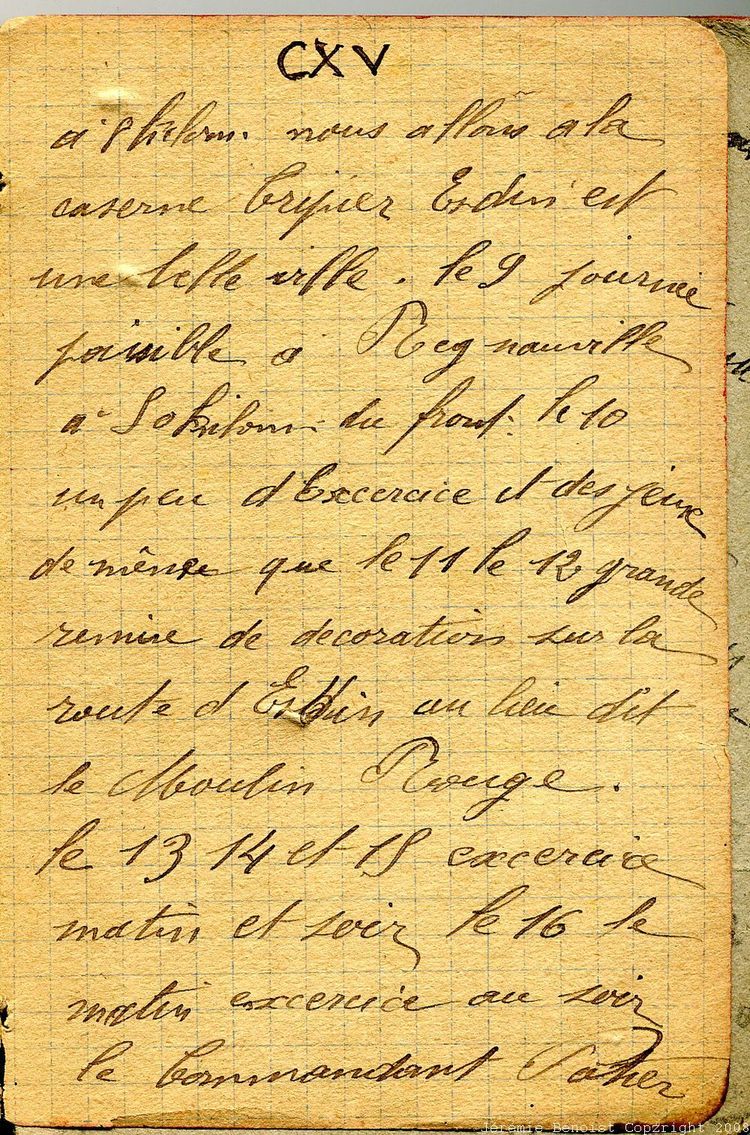 CXV
a 8 kilom. nous allons a la
caserne Tripier Esdin est
une belle ville. le 9 journée
paisible a Regnauville
a 50 kilom. du front. le 10
un peu d'Excercice et des jeux
de même que le 11 le 12 grande
remise de decoration sur la
route d Esdin au lieu dit
le Moulin Rouge.
le 13 14 et 15 excercice
matin et soir le 16 le
matin excercice au soir
le Commandant
Jéremie Benoist Copzright 2008